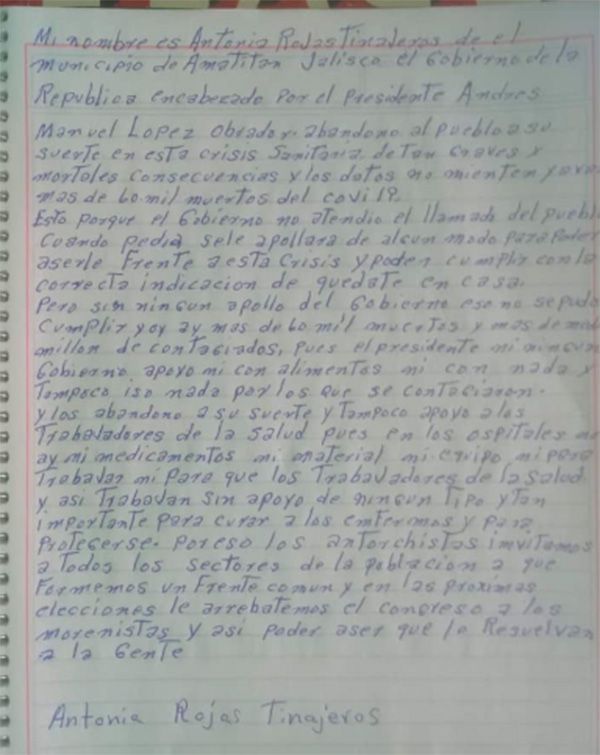 Mi nombre es Antonia Rojas Tinajeros de el
municipio de Amatitan Jalisco el Gobierno de la
Republica encabezado por el Presidente Andres
Manuel Lopez obrador. abandono al pueblo a su
suerte en esta crisis Sanitaria, de Tan Graves y
mortales consecuencias y los datos no mienten
mas de 60 mil muertos del covi 19.
Esto porque el Gobierno no atendio el llamado del pueblo
Cuando pedia sele apollara de algun modo para Poder
aserle Frente a esta Crisis y poder cumplir con la
correcta indicacion de quedate en casa.
Pero sin ningun apollo del Gobierno eso no se pudo
Cumplir y oy ay mas de 60 mil muertos y mas de medio
millon de contagiados, pues el presidente ni ningun
Gobierno apoyo ni con alimentos ni con nada y
Tampoco iso nada por los que se contagiaron.
y los abandono a su suerte y Tampoco apoyo a los
Trabajadores de la salud pues en los ospitales no
ay ni medicamentos ni material ni equipo ni para
Trabajar ni Para que los Trabajadores de la Salud
y asi Trabajan Sin apoyo de ningun Tipo y Tan
importante para curar a los enfermos y para
Protegerse. Por eso los antorchistas invitamos
a Todos los sectores de la poblacion a que
Formemos un Frente comun y en las proximas
elecciones le arrebatemos el congreso a los
morenistas y asi poder aser que lo Resuelvan
a la Gente
Antonia Rojas Tinajeros